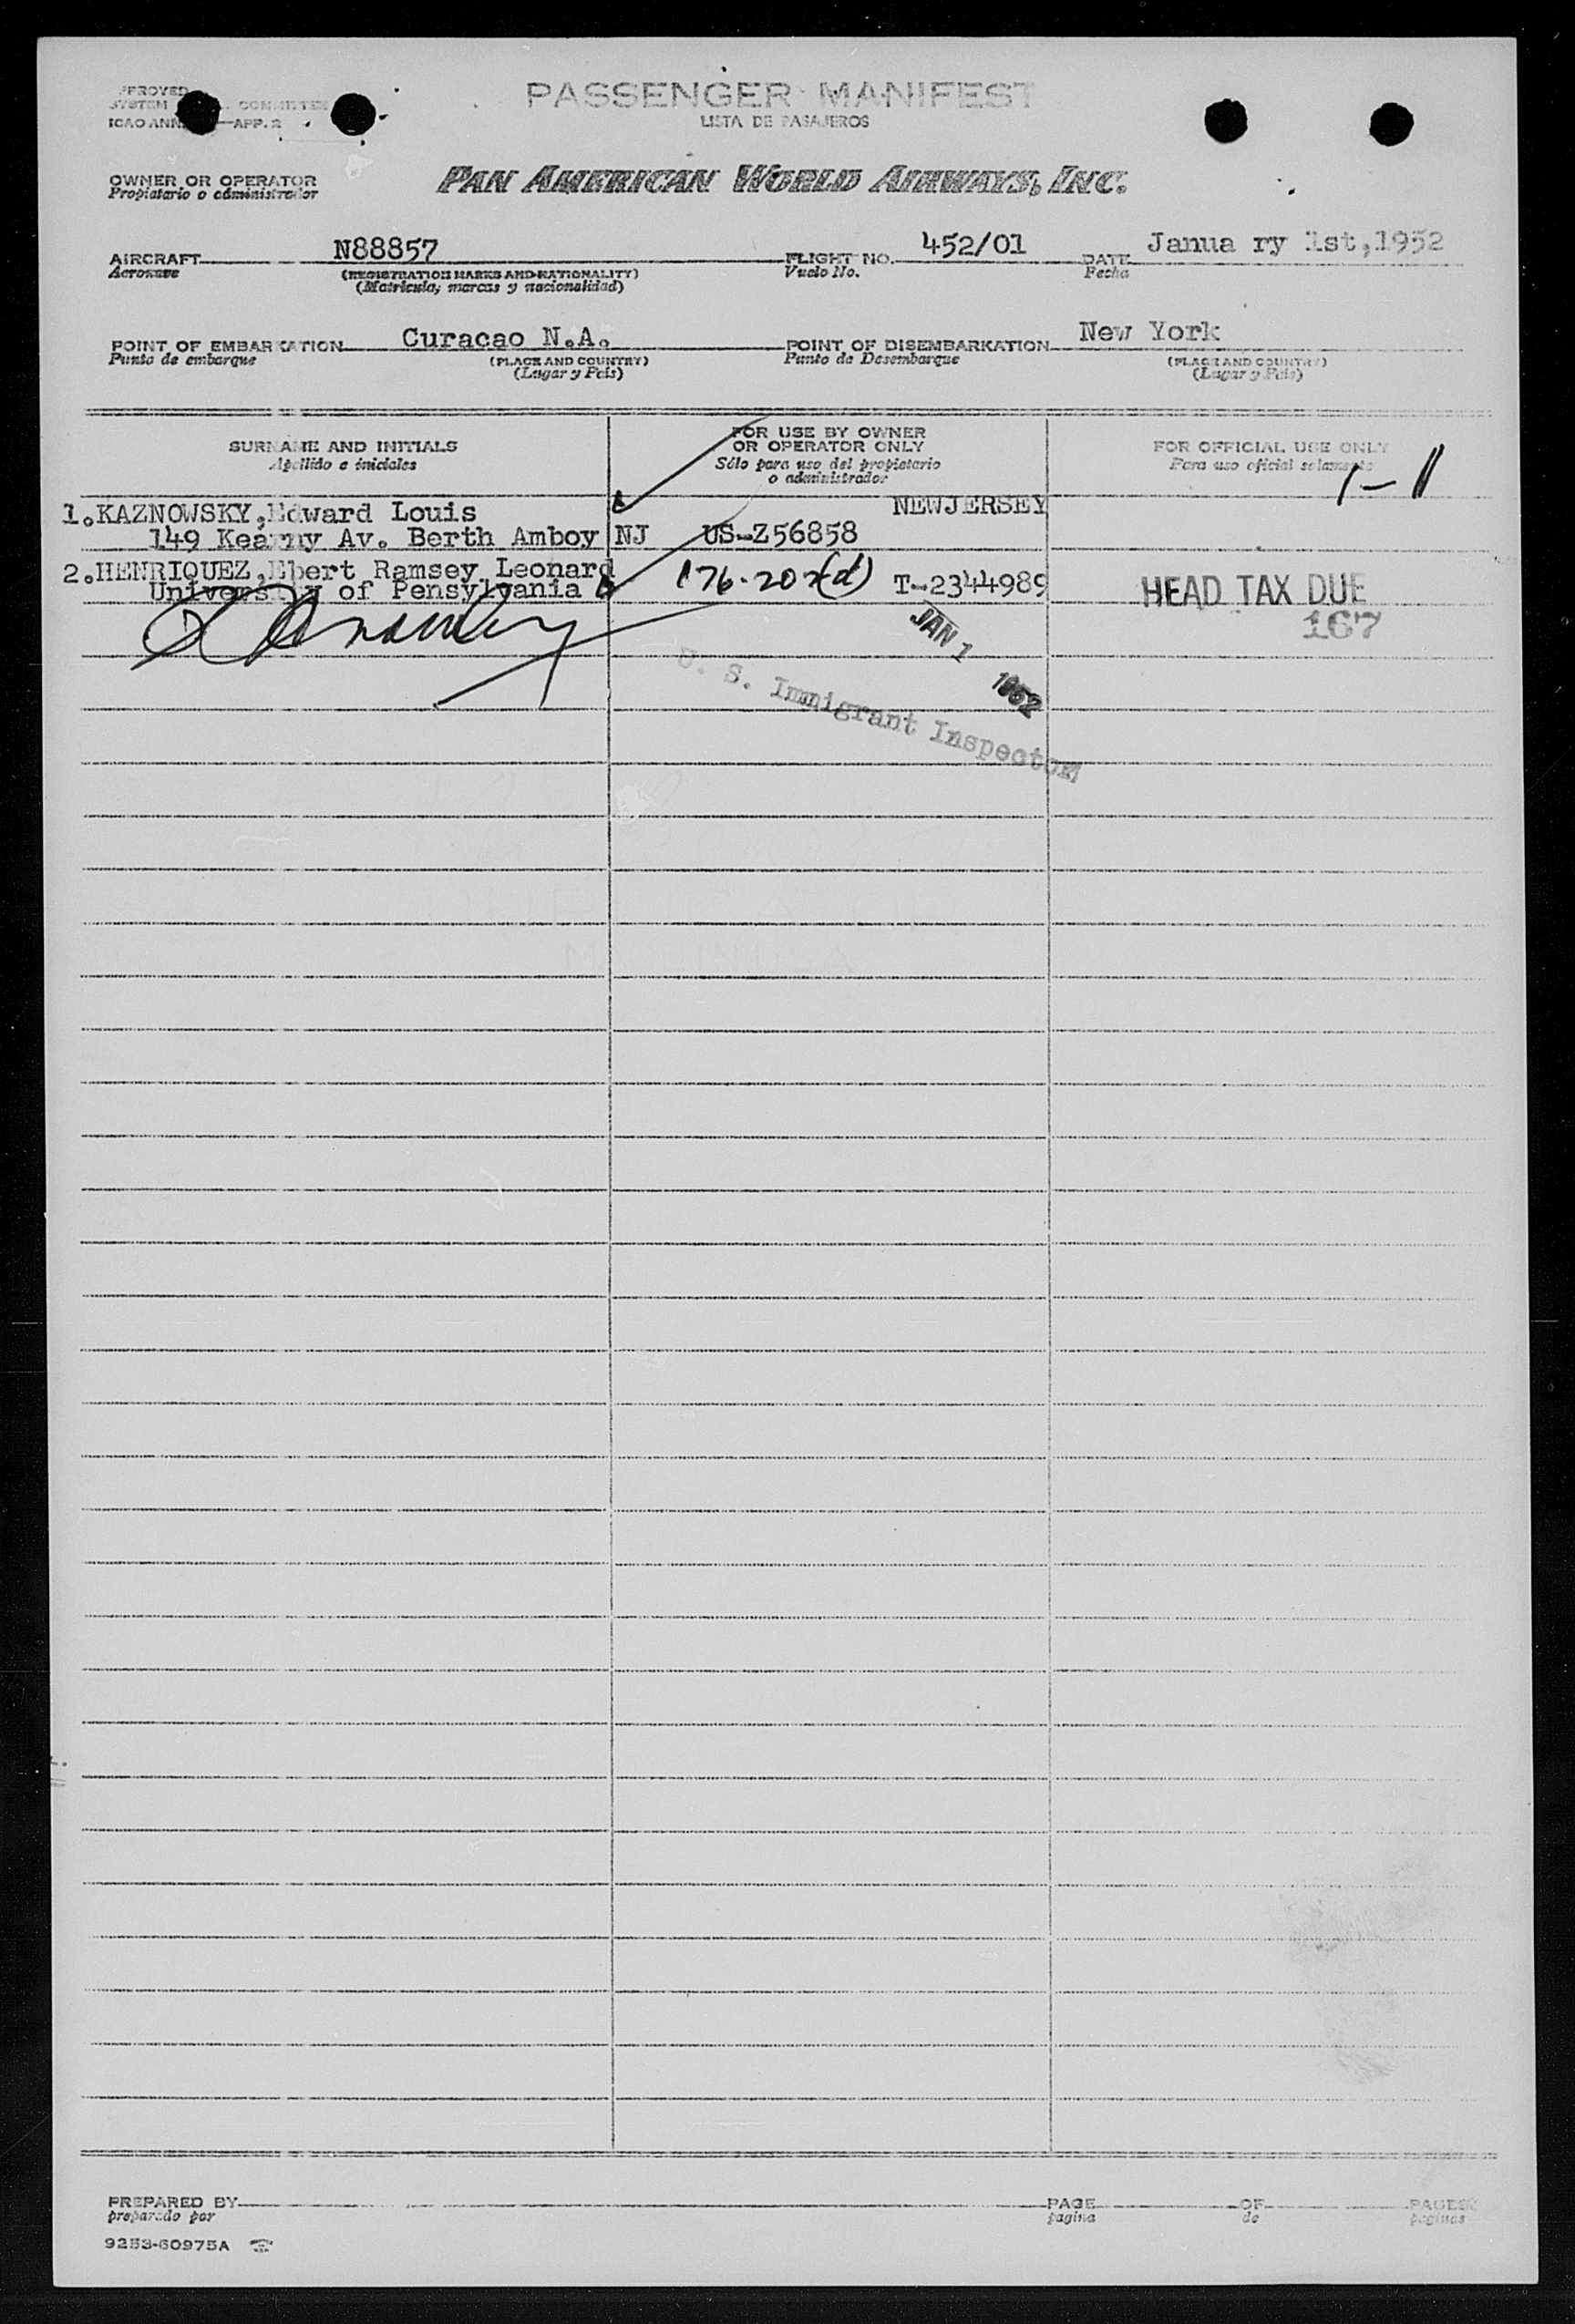 PASSENGER MANIFEST
LISTA DE PASAJEROS
APP. 2
OWNER OR OPERATOR
Propietario o administrador
PAN AMERICAN WORLD AIRWAYS, INC.
AIRCRAFT N88857 FLIGHT NO. 452/01 DATE Janua ry 1st,1952
Aeronave (REGISTRATION MARKS AND NATIONALITY) Vuelo No. Fecha
(Matricula, marcas y nacionalidad)
POINT OF EMBARKATION Curacao N.A. POINT OF DISEMBARKATION New York
Punto de embarque (PLACE AND COUNTRY) Punto de Desembarque (PLACE AND COUNTRY)
(Lugar y Pais) (Lugar y Pais)
SURNAME AND INITIALS
Apellido e iniciales
FOR USE BY OWNER
OR OPERATOR ONLY
Sólo para uso del propietario
o administrador
FOR OFFICIAL USE ONLY
Para uso oficial solamente
1-11
1.KAZNOWSKY,Edward Louis NEWJERSEY
149 Kearny Av. Berth Amboy NJ US-Z56858
2.HENRIQUEZ,Ebert Ramsey Leonard 176.202(d) T-2344989 HEAD TAX DUE
University of Pensylvania
167
JAN 1 1952
U. S. Immigrant Inspector
PREPARED BY PAGE OF PAGES
preparado por pagina de paginas
9253-60975A